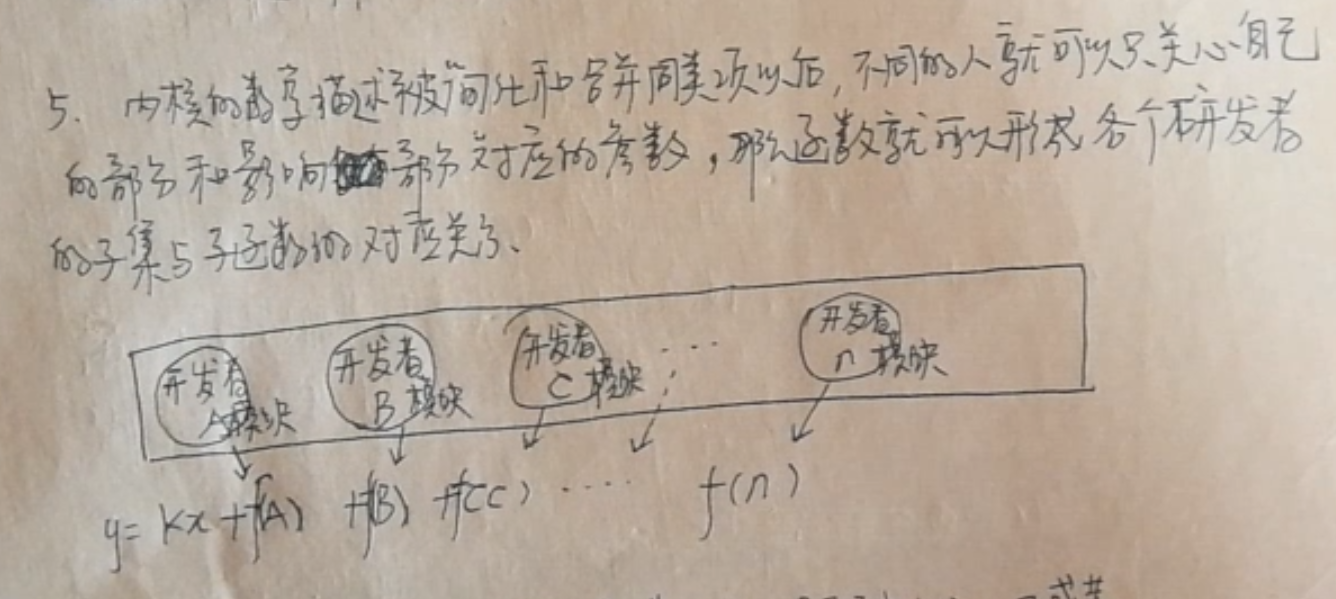 5. 内核的数学描述被简化和合并同类项以后,不同的人就可以只关心自己
的部分和影响部分对应的参数,那么函数就可以形成各个研发者
的子集与子函数的对应关系、
开发者 A模块
开发者 B模块
开发者 C模块
......
开发者 n模块
y= kx+f(A) +f(B) +f(C) ..... f(n)